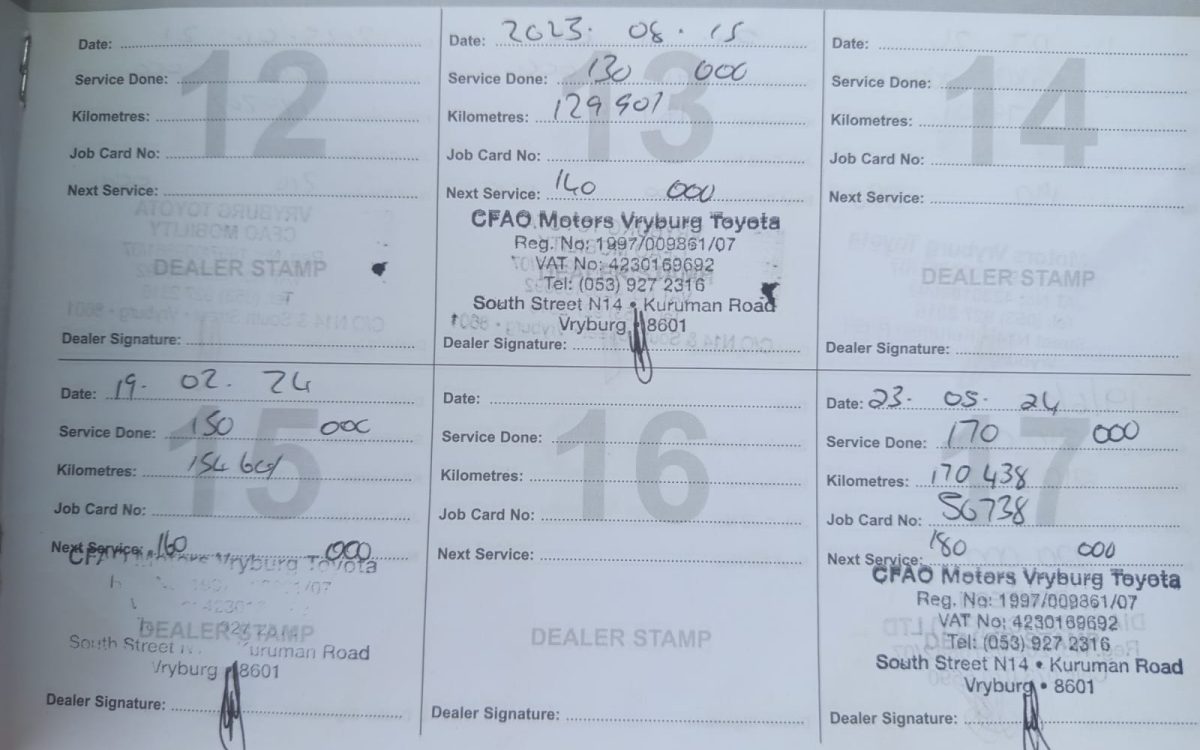 12
Date:
Service Done:
Kilometres:
Job Card No:
Next Service:
DEALER STAMP
Dealer Signature:
13
Date: 2023. 08. 15
Service Done: 130 000
Kilometres: 129 907
Job Card No:
Next Service: 140 000
CFAO Motors Vryburg Toyota
Reg. No: 1997/009861/07
VAT No: 4230169692
Tel: (053) 927 2316
South Street N14 • Kuruman Road
Vryburg • 8601
Dealer Signature:
14
Date:
Service Done:
Kilometres:
Job Card No:
Next Service:
DEALER STAMP
Dealer Signature:
15
Date: 19. 02. 24
Service Done: 150 000
Kilometres: 154
Job Card No:
Next Service: 160 000
Vryburg Toyota
DEALER STAMP
South Street Kuruman Road
Vryburg 8601
Dealer Signature:
16
Date:
Service Done:
Kilometres:
Job Card No:
Next Service:
DEALER STAMP
Dealer Signature:
17
Date: 23. 05. 24
Service Done: 170 000
Kilometres: 170 438
Job Card No: 56738
Next Service: 180 000
CFAO Motors Vryburg Toyota
Reg. No: 1997/009861/07
VAT No: 4230169692
Tel: (053) 927 2316
South Street N14 • Kuruman Road
Vryburg • 8601
Dealer Signature: